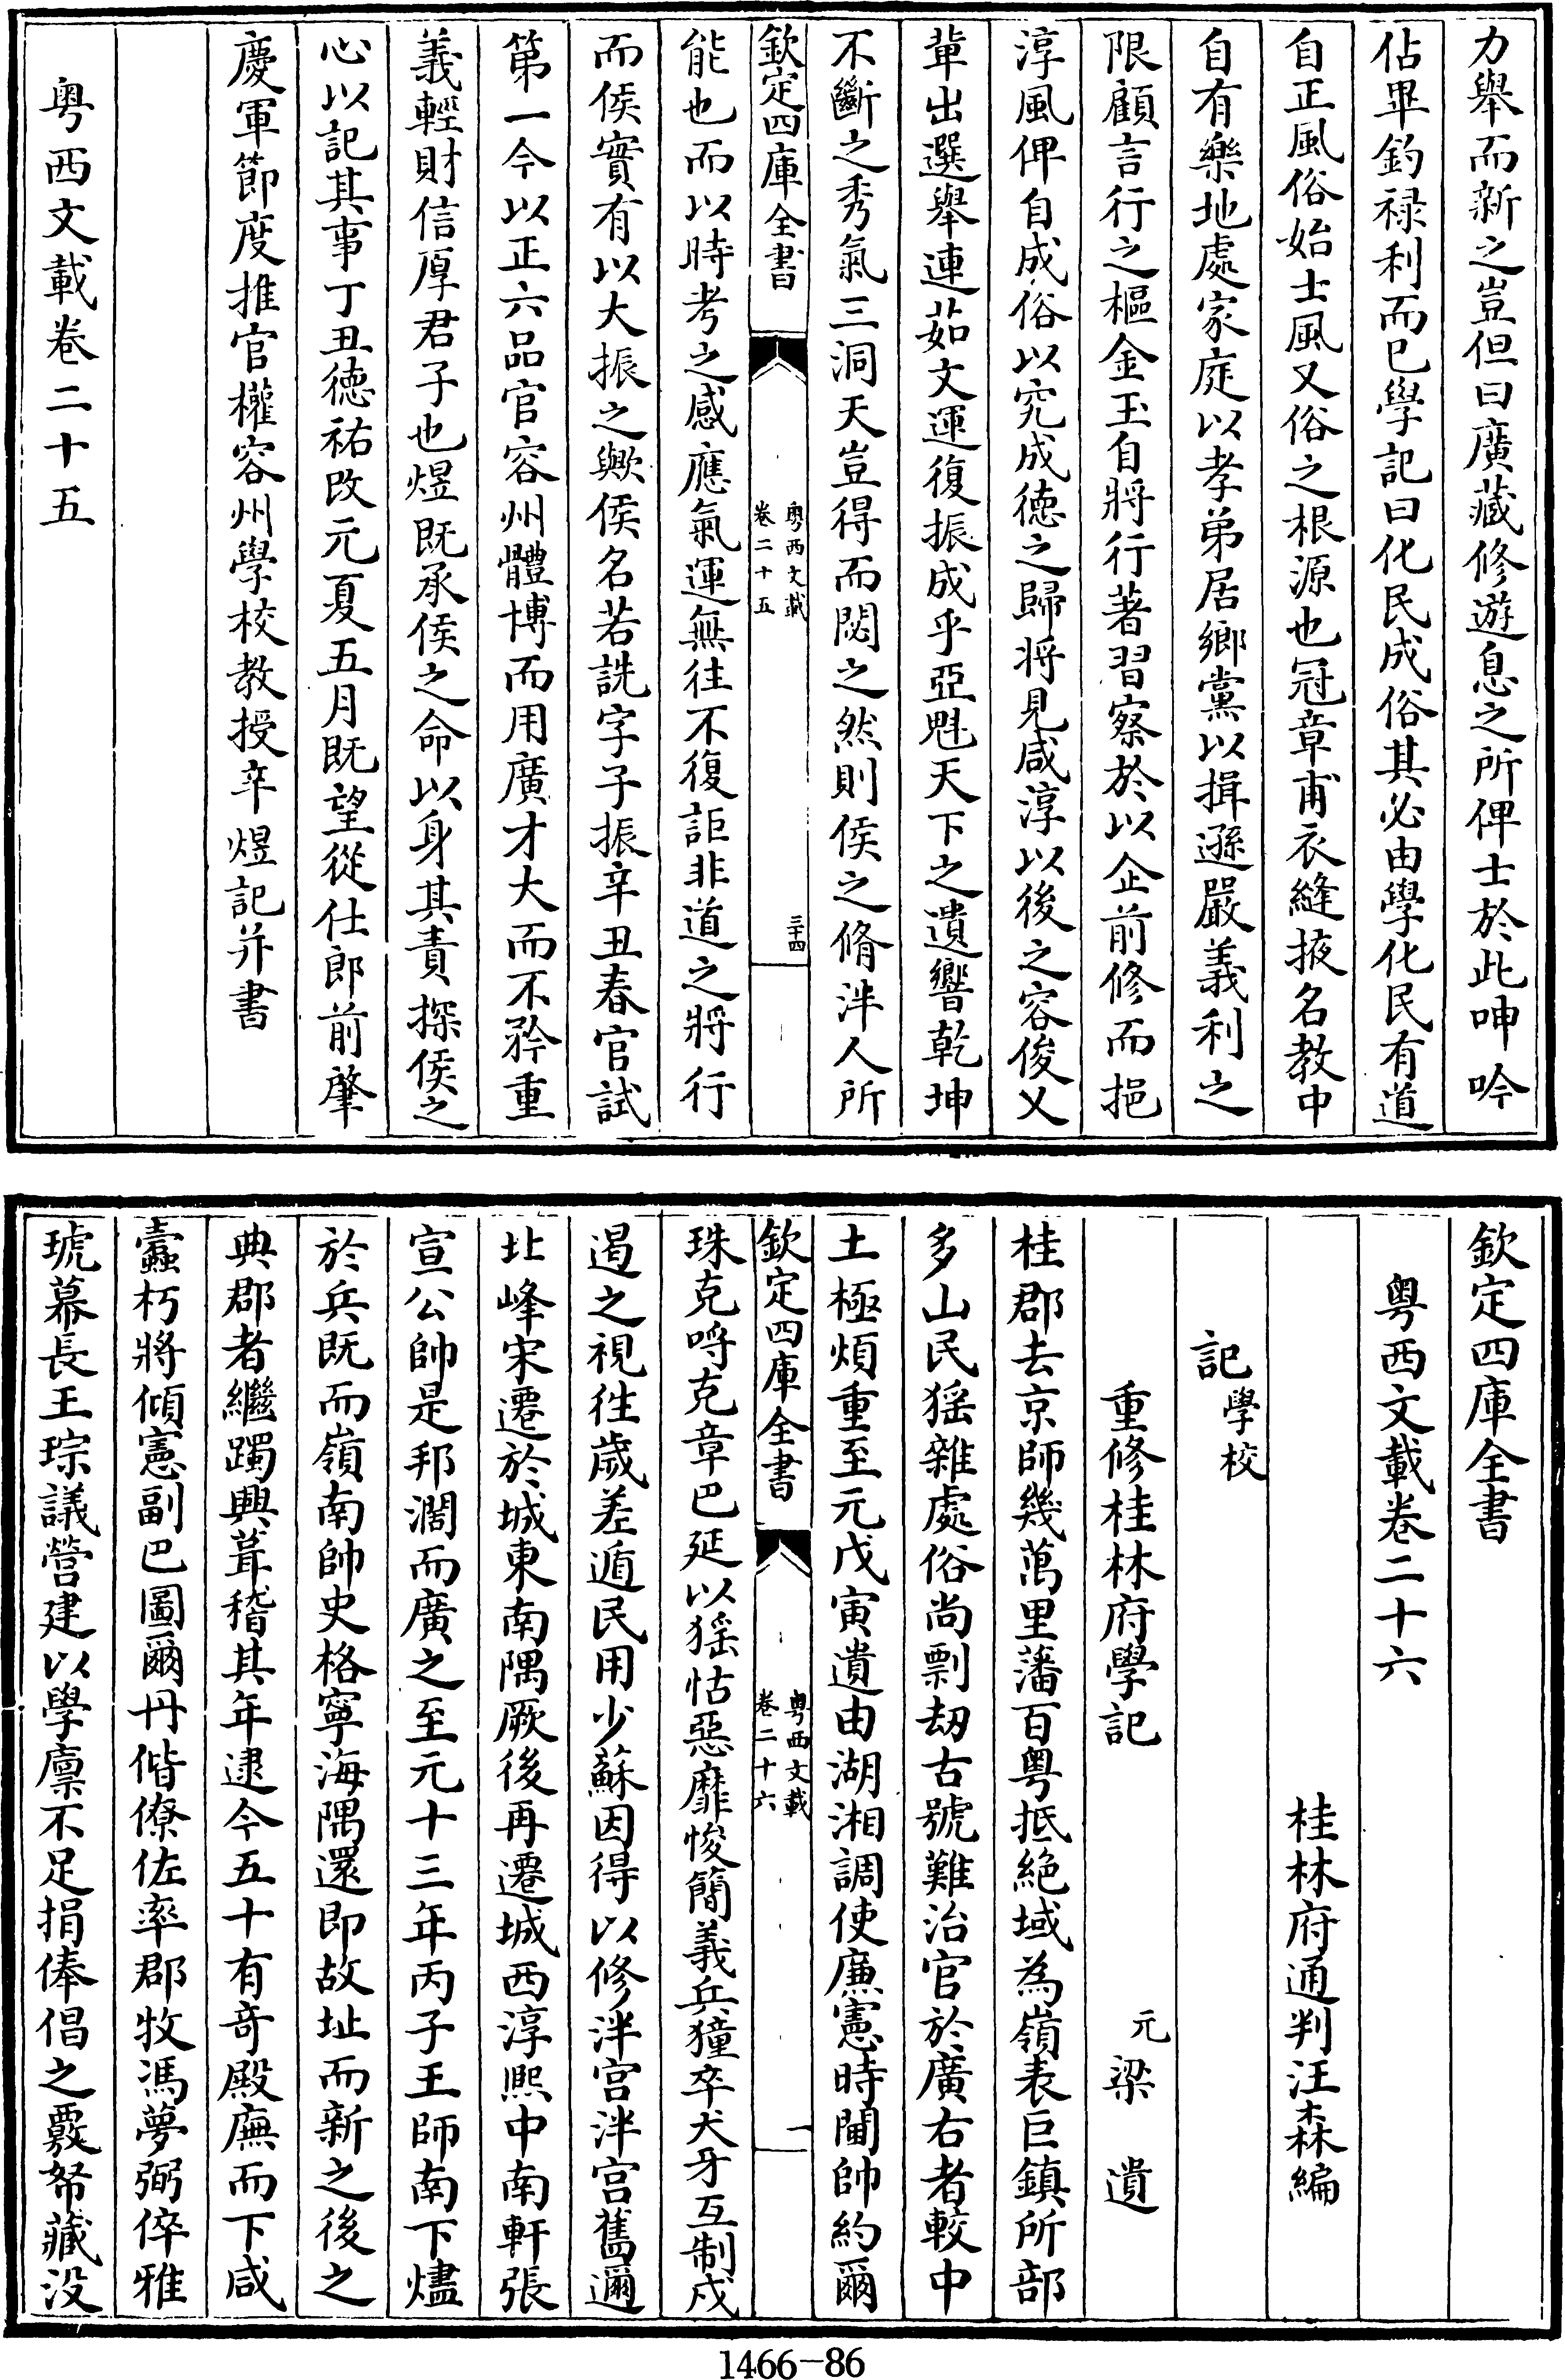 力舉而新之豈但曰廣藏修遊息之所俾士於此呻吟
佔畢釣禄利而已學記曰化民成俗其必由學化民有道
自正風俗始士風又俗之根源也冠章甫衣縫掖名教中
自有樂地處家庭以孝弟居鄉黨以揖遜嚴義利之
限顧言行之樞金玉自將行著習察於以企前修而挹
淳風俾自成俗以究成德之歸将見咸淳以後之容俊乂
軰出選舉連茹文運復振成乎亞魁天下之遺響乾坤
不斷之秀氣三洞天豈得而閟之然則侯之脩泮人所
欽定四庫全書
粤西文載
卷二十五
三十四
能也而以時考之感應氣運無往不復詎非道之將行
而侯實有以大振之歟侯名若詵字子振辛丑春官試
第一今以正六品官容州體博而用廣才大而不矜重
義輕財信厚君子也煜既承侯之命以身其責探侯之
心以記其事丁丑德祐改元夏五月既望從仕郎前肇
慶軍節度推官權容州學校教授辛煜記并書
粤西文載卷二十五
欽定四庫全書
粤西文載卷二十六
桂林府通判汪森編
記學校
重修桂林府學記
元梁遺
桂郡去京師幾萬里藩百粤抵絶域為嶺表巨鎮所部
多山民猺雜處俗尚剽刼古號難治官於廣右者較中
土極煩重至元戊寅遺由湖湘調使廉憲時閫帥約爾
欽定四庫全書
粤西文載
卷二十六
一
珠克哷克章巴延以猺怙惡靡悛簡義兵獞卒犬牙互制戍
遏之視徃歲差遁民用少蘇因得以修泮宫泮宫舊邇
北峰宋遷於城東南隅厥後再遷城西淳熙中南軒張
宣公帥是邦濶而廣之至元十三年丙子王師南下燼
於兵既而嶺南帥史格寧海隅還即故址而新之後之
典郡者繼躅興葺稽其年逮今五十有奇殿廡而下咸
蠧朽將傾憲副巴圖爾丹偕僚佐率郡牧馮夢弼倅雅
琥幕長王琮議營建以學廪不足捐俸倡之覈帑藏没
1466-86